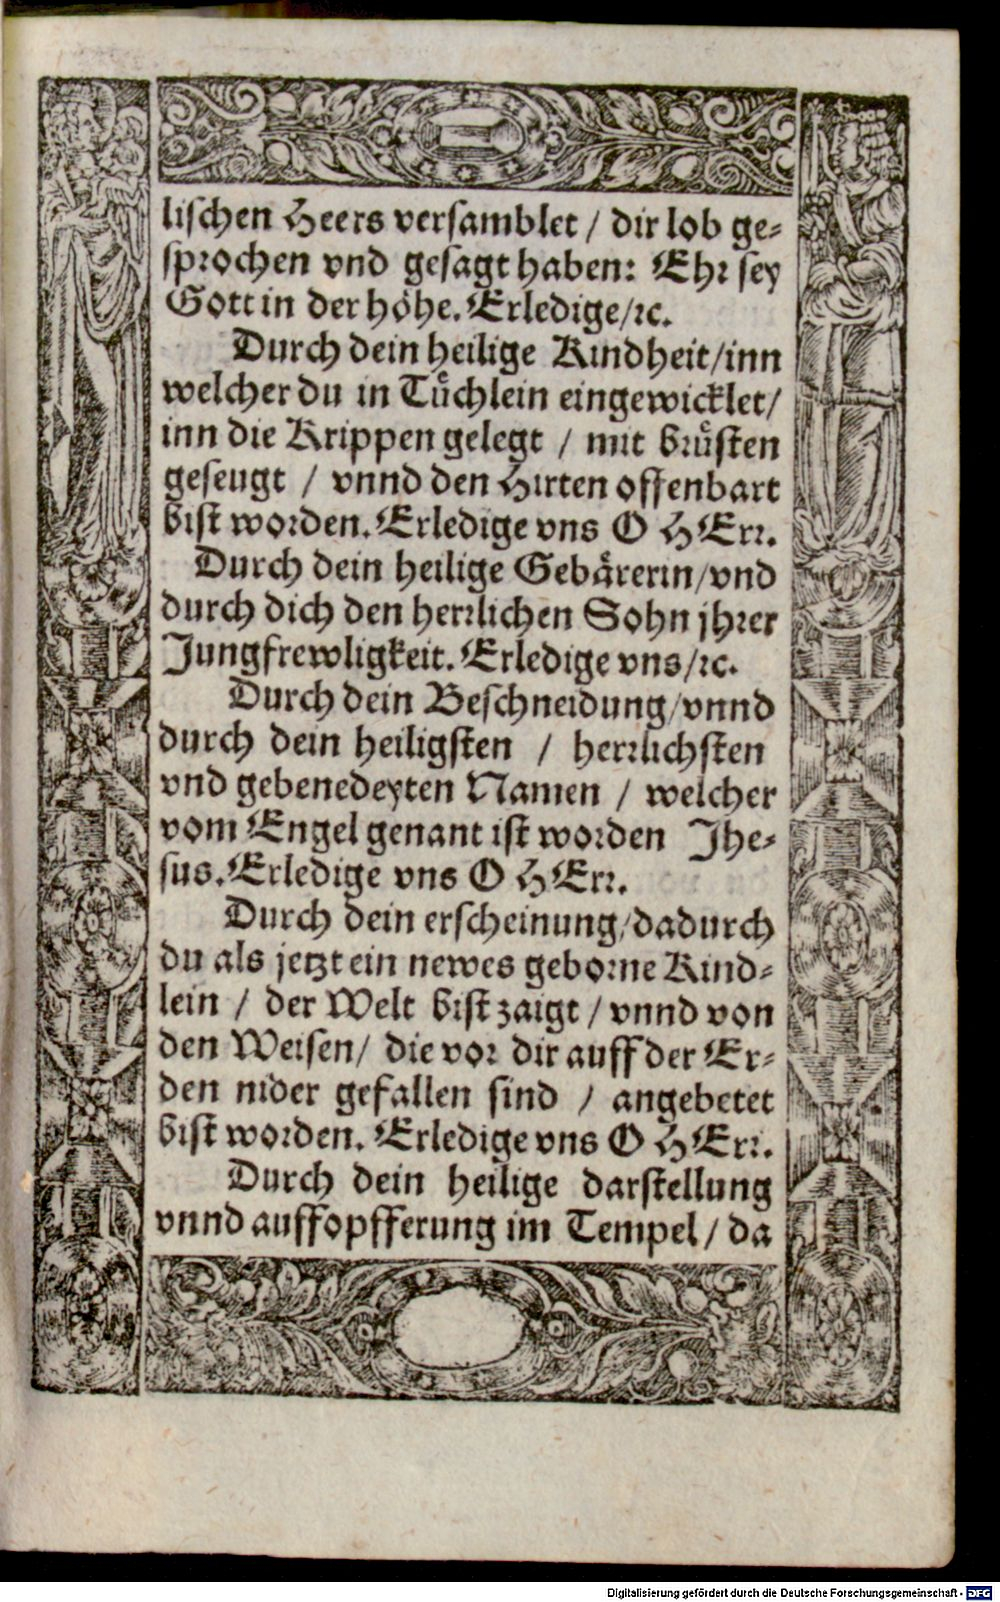 lischen Heers versamblet / dir lob ge-
sprochen vnd gesagt haben: Ehr sey
Gott in der höhe. Erledige/ꝛc.
Durch dein heilige Kindheit/inn
welcher du in Tuͤchlein eingewicklet/
inn die Krippen gelegt / mit bruͤsten
geseugt / vnnd den Hirten offenbart
bist worden. Erledige vns O HErr.
Durch dein heilige Gebaͤrerin/vnd
durch dich den herrlichen Sohn jhrer
Jungfrewligkeit. Erledige vns/ꝛc.
Durch dein Beschneidung/vnnd
durch dein heiligsten / herrlichsten
vnd gebenedeyten Namen / welcher
vom Engel genant ist worden Jhe-
sus. Erledige vns O HErr.
Durch dein erscheinung/dadurch
du als jetzt ein newes geborne Kind-
lein / der Welt bist zaigt / vnnd von
den Weisen/ die vor dir auff der Er-
den nider gefallen sind / angebetet
bist worden. Erledige vns O HErr.
Durch dein heilige darstellung
vnnd auffopfferung im Tempel / da
Digitalisierung gefördert durch die Deutsche Forschungsgemeinschaft - DFG